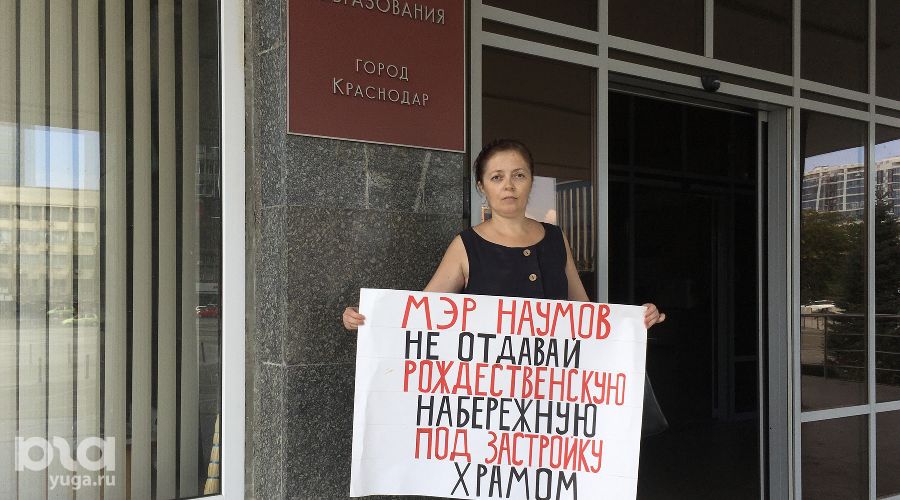 ОБРАЗОВАНИЯ
ГОРОД
КРАСНОДАР
МЭР НАУМОВ
НЕ ОТДАВАЙ
РОЖДЕСТВЕНСКУЮ
НАБЕРЕЖНУЮ
ПОД ЗАСТРОЙКУ
ХРАМОМ
yuga.ru